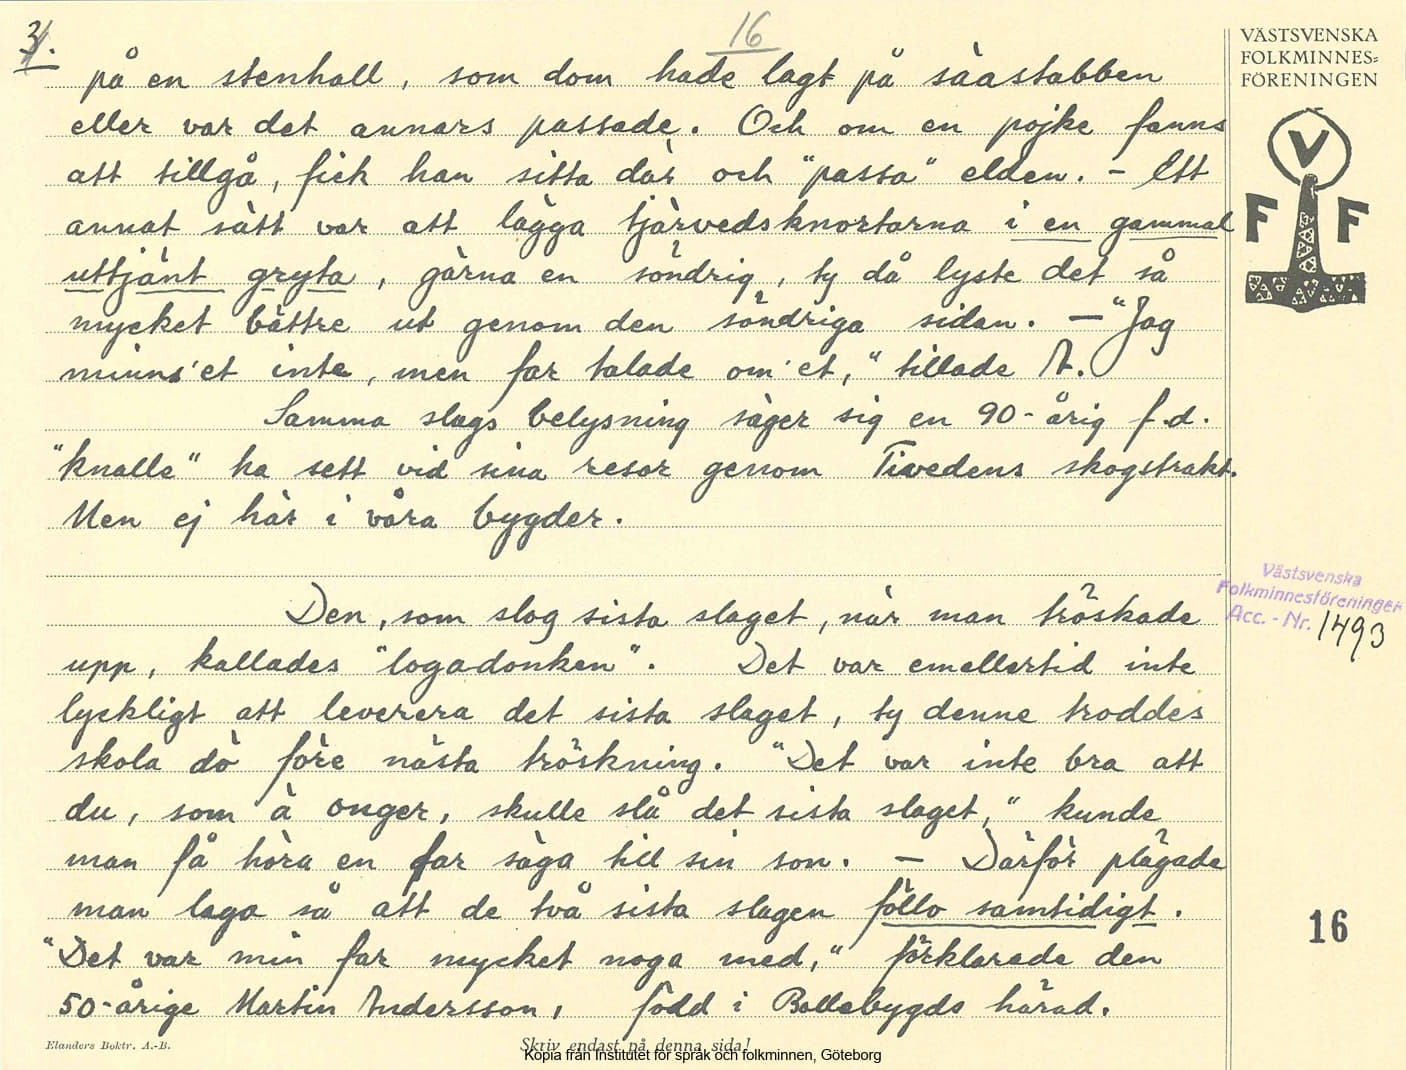 3.
16
på en stenhall, som dom hade lagt på såastabben
eller var det annars passade. Och om en pojke fanns
att tillgå, fick han sitta där och "passa" elden. - Ett
annat sätt var att lägga tjärvedsknortarna i en gammal
uttjänt gryta, gärna en söndrig, ty då lyste det så
mycket bättre ut genom den söndriga sidan. — "Jag
minns'et inte, men far talade om'et," tillade A.
Samma slags belysning säger sig en 90-årig f.d.
"knalle" ha sett vid sina resor genom Tivedens skogstrakt.
Men ej här i våra bygder.
Den, som slog sista slaget, när man tröskade
upp, kallades "logadonken". Det var emellertid inte
lyckligt att leverera det sista slaget, ty denne troddes
skola dö före nästa tröskning. "Det var inte bra att
du, som ä onger, skulle slå det sista slaget," kunde
man få höra en far säga till sin son. — Därför plägade
man laga så att de två sista slagen föllo samtidigt.
"Det var min far mycket noga med," förklarade den
50-årige Martin Andersson, född i Bollebygds härad.
Elanders Boktr. A.-B.
Skriv endast på denna sida!
Kopia från Institutet för språk och folkminnen, Göteborg
VÄSTSVENSKA
FOLKMINNES=
FÖRENINGEN
V
F F
Västsvenska
Folkminnesföreningen
Acc. - Nr. 1493
16